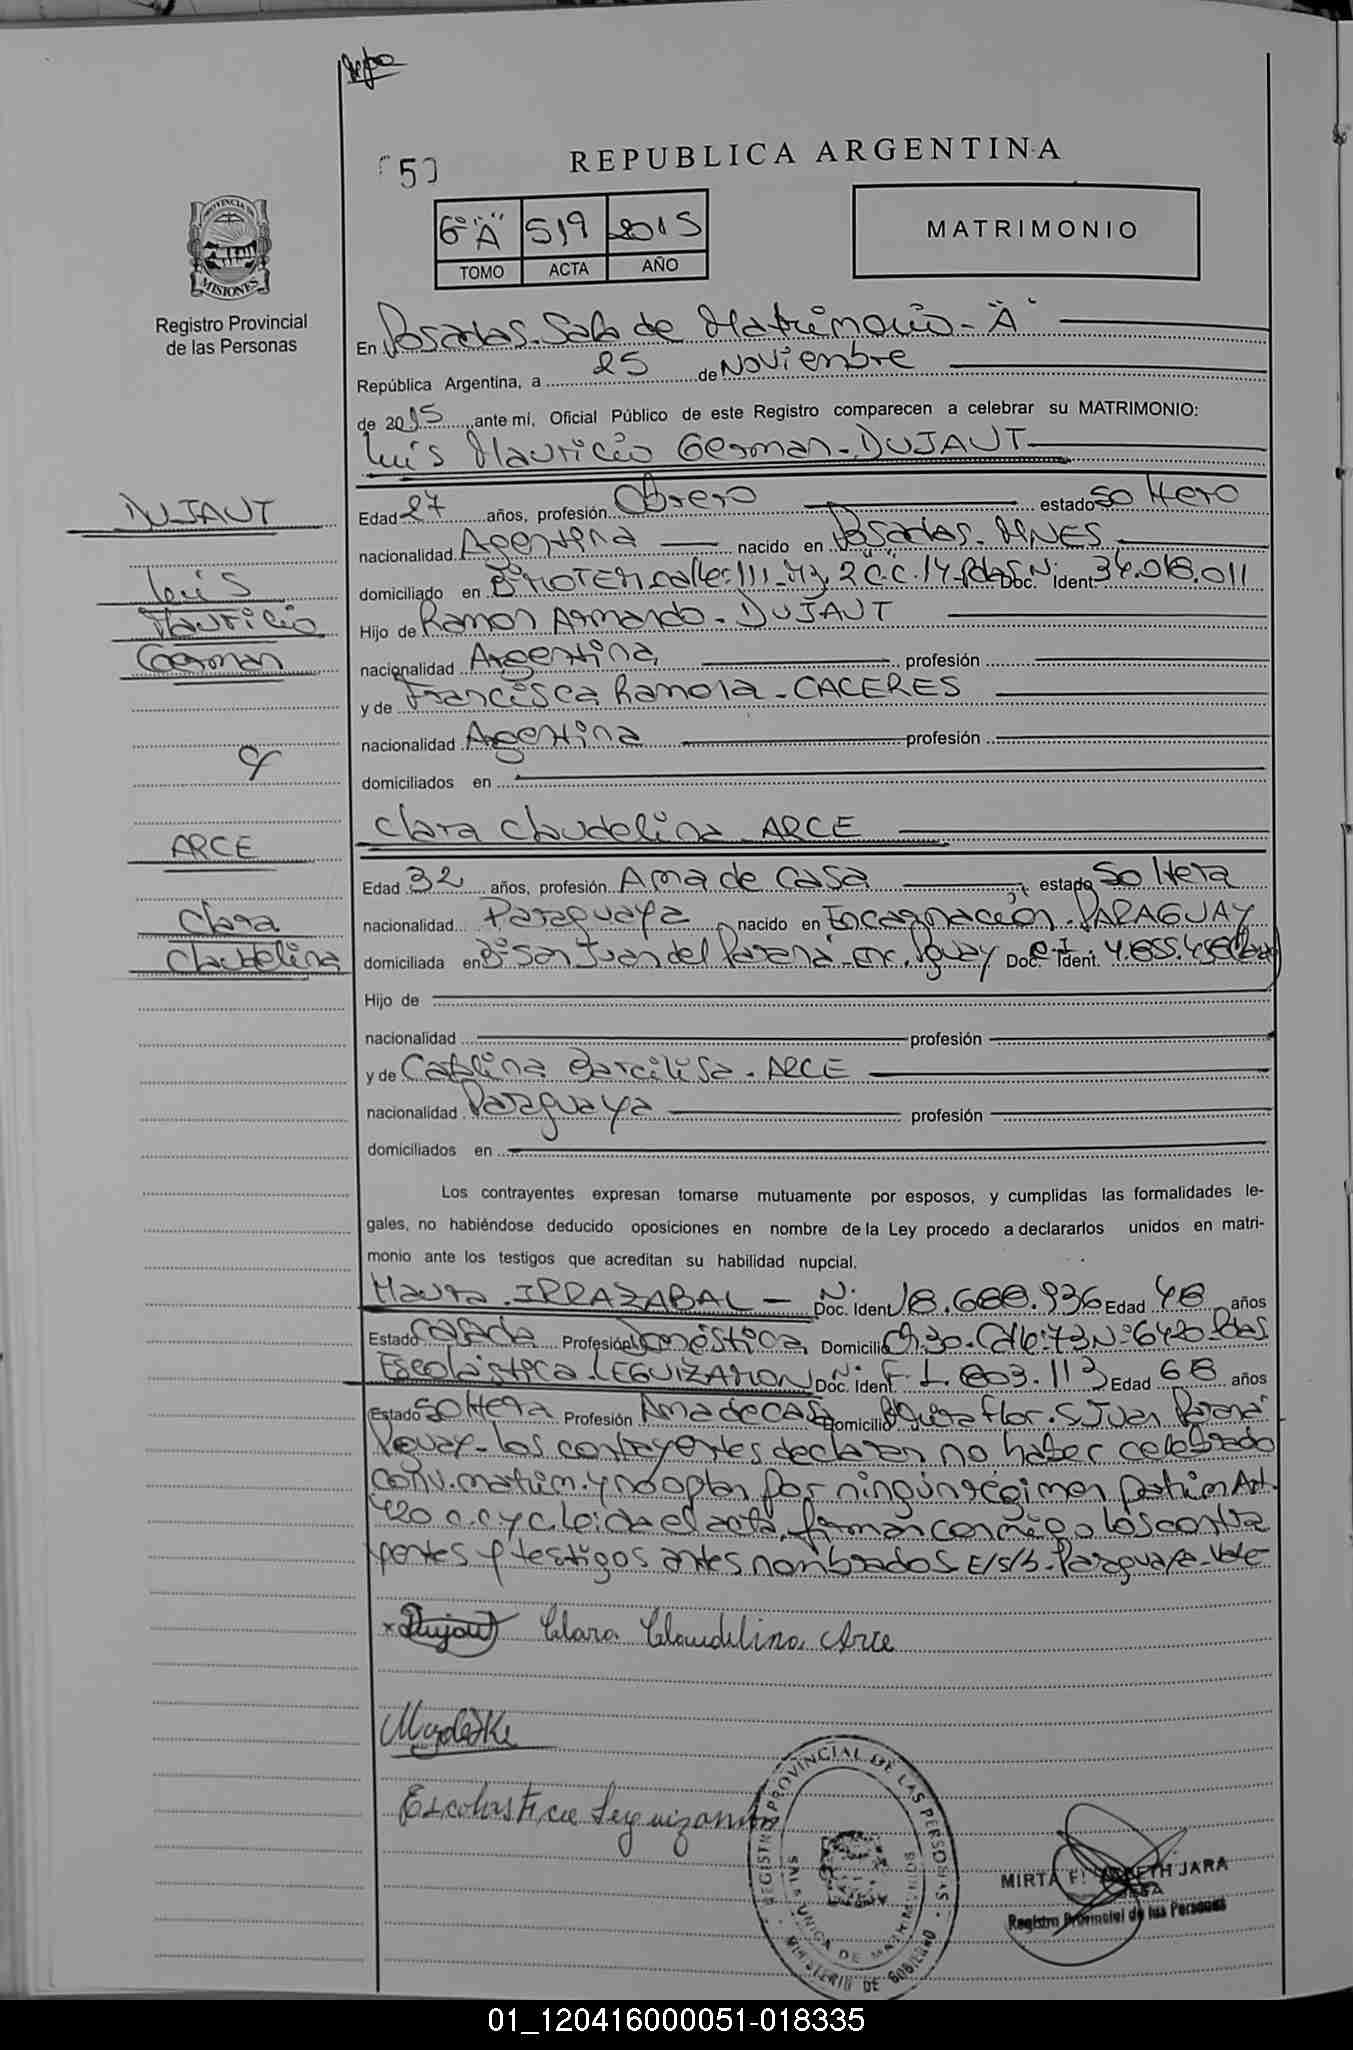 REPUBLICA ARGENTINA
6º "A" 519 2015
TOMO ACTA AÑO
MATRIMONIO
PROVINCIA DE
MISIONES
Registro Provincial
de las Personas
En Posadas. Sala de Matrimonio - "A"
República Argentina, a 25 de Noviembre
de 2015, ante mi, Oficial Público de este Registro comparecen a celebrar su MATRIMONIO:
Luis Mauricio German - DUJAUT
DUJAUT
Luis
Mauricio
German
Edad 27 años, profesión Obrero estado soltero
nacionalidad Argentina nacido en Posadas. MNES
domiciliado en Doc. N. Ident 34.018.011
Hijo de Ramon Armando - DUJAUT
nacionalidad Argentina profesión
y de Francisca Ramona - CACERES
nacionalidad Argentina profesión
domiciliados en
Clara Claudelina ARCE
ARCE
Clara
Claudelina
Edad 32 años, profesión Ama de casa estado soltera
nacionalidad Paraguaya nacido en Encarnación. PARAGUAY
domiciliada en Bº San Juan del Paraná - Enc. Pguay Doc. Ident.
Hijo de
nacionalidad profesión
y de Catalina ARCE
nacionalidad Paraguaya profesión
domiciliados en
Los contrayentes expresan tomarse mutuamente por esposos, y cumplidas las formalidades le-
gales, no habiéndose deducido oposiciones en nombre de la Ley procedo a declararlos unidos en matri-
monio ante los testigos que acreditan su habilidad nupcial.
IRRAZABAL - Doc. Ident 18.688.936 Edad 48 años
Estado casada Profesión Doméstica Domicilio Ch.30. Calle: 73 Nº 6420 Pdas
Escolástica LEGUIZAMON Doc. Ident. 1.803.113 Edad 68 años
Estado soltera Profesión Ama de casa Domicilio flor. S. Juan Paraná
Pguay - Los contrayentes declaran no haber celebrado
conv. matrim. y no optan por ningún régimen patrim Art.
420 c.c y c. Leida el acta, firman conmigo los contra
yentes y testigos antes nombrados E/s/b - Paraguaya - Vale
x Dujaut Clara Claudelina Arce
Escolastica Leguizamón
REGISTRO PROVINCIAL DE LAS PERSONAS
SALA UNICA DE MATRIMONIOS
MINISTERIO DE GOBIERNO
MIRTA JARA
Registro Provincial de las Personas
01_120416000051-018335